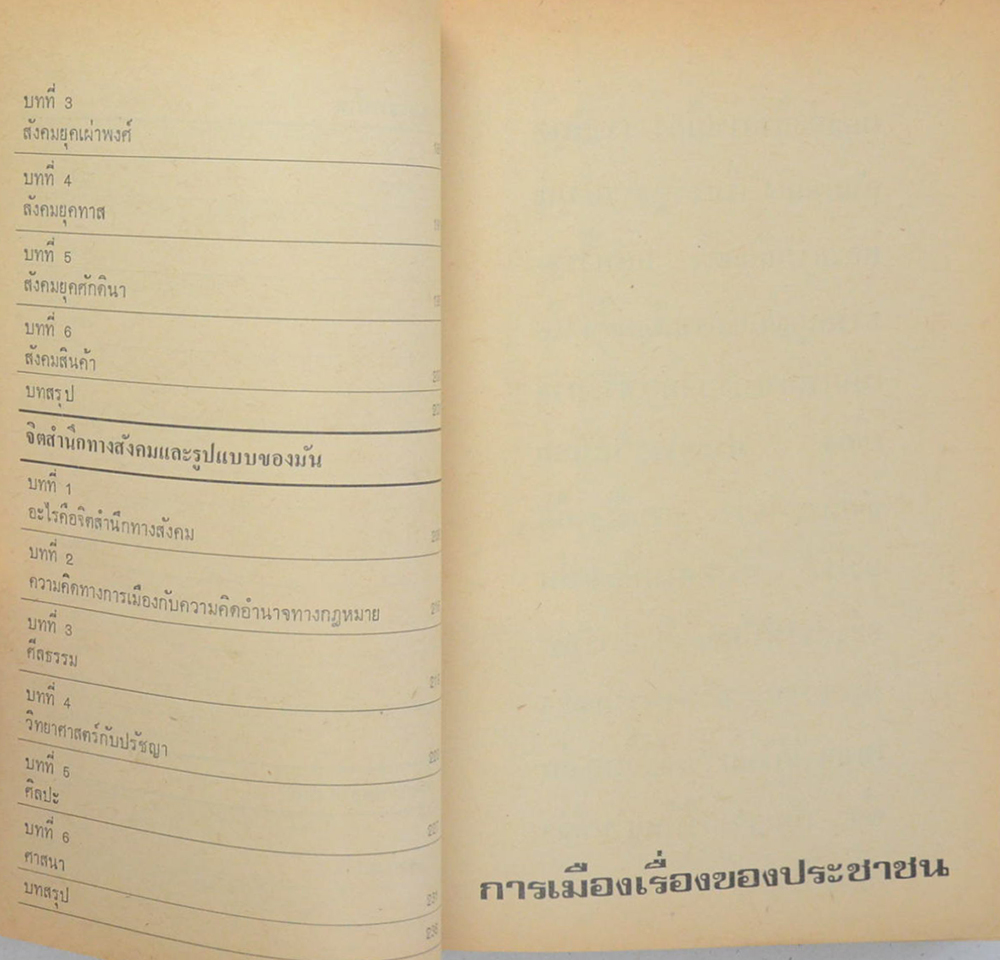 บทที่ 3
สังคมยุคเผ่าพงศ์
บทที่ 4
สังคมยุคทาส
บทที่ 5
สังคมยุคศักดินา
บทที่ 6
สังคมสินค้า
บทสรุป
จิตสำนึกทางสังคมและรูปแบบของมัน
บทที่ 1
อะไรคือจิตสำนึกทางสังคม
บทที่ 2
ความคิดทางการเมืองกับความคิดอำนาจทางกฎหมาย
บทที่ 3
ศีลธรรม
บทที่ 4
วิทยาศาสตร์กับปรัชญา
บทที่ 5
ศิลปะ
บทที่ 6
ศาสนา
บทสรุป
การเมืองเรื่องของประชาชน